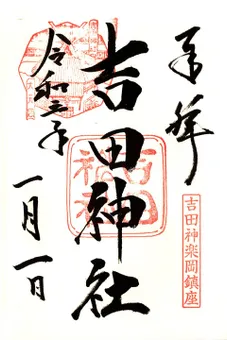 奉拝
吉田神楽岡鎮座
吉田神社
令和三年
一月一日